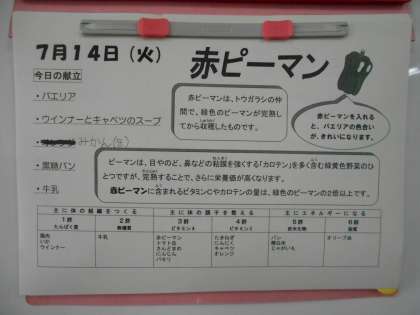 7月14日(火)
赤ピーマン
今日の献立
・パエリア
・ウインナーとキャベツのスープ
みかん(缶)
・黒糖パン
・牛乳
赤ピーマンは、トウガラシの仲
間で、緑色のピーマンが完熟し
てから収穫したものです。
赤ピーマンを入れる
と、パエリアの色合い
が、きれいになります。
ピーマンは、目やのど、鼻などの粘膜を強くする「カロテン」を多く含む緑黄色野菜のひ
とつですが、完熟することで、さらに栄養価が高くなります。
赤ピーマンに含まれるビタミンCやカロテンの量は、緑色のピーマンの2倍以上です。
主に体の組織をつくる 主に体の調子を整える 主にエネルギーになる
1群 2群 3群 4群 5群 6群
たんぱく質 無機質 ビタミンA ビタミンC 炭水化物 脂肪
鶏肉 牛乳 赤ピーマン たまねぎ パン オリーブ油
いか トマト缶 にんにく 精白米
ウインナー さんどまめ キャベツ じゃがいも
にんじん オレンジ
パセリ